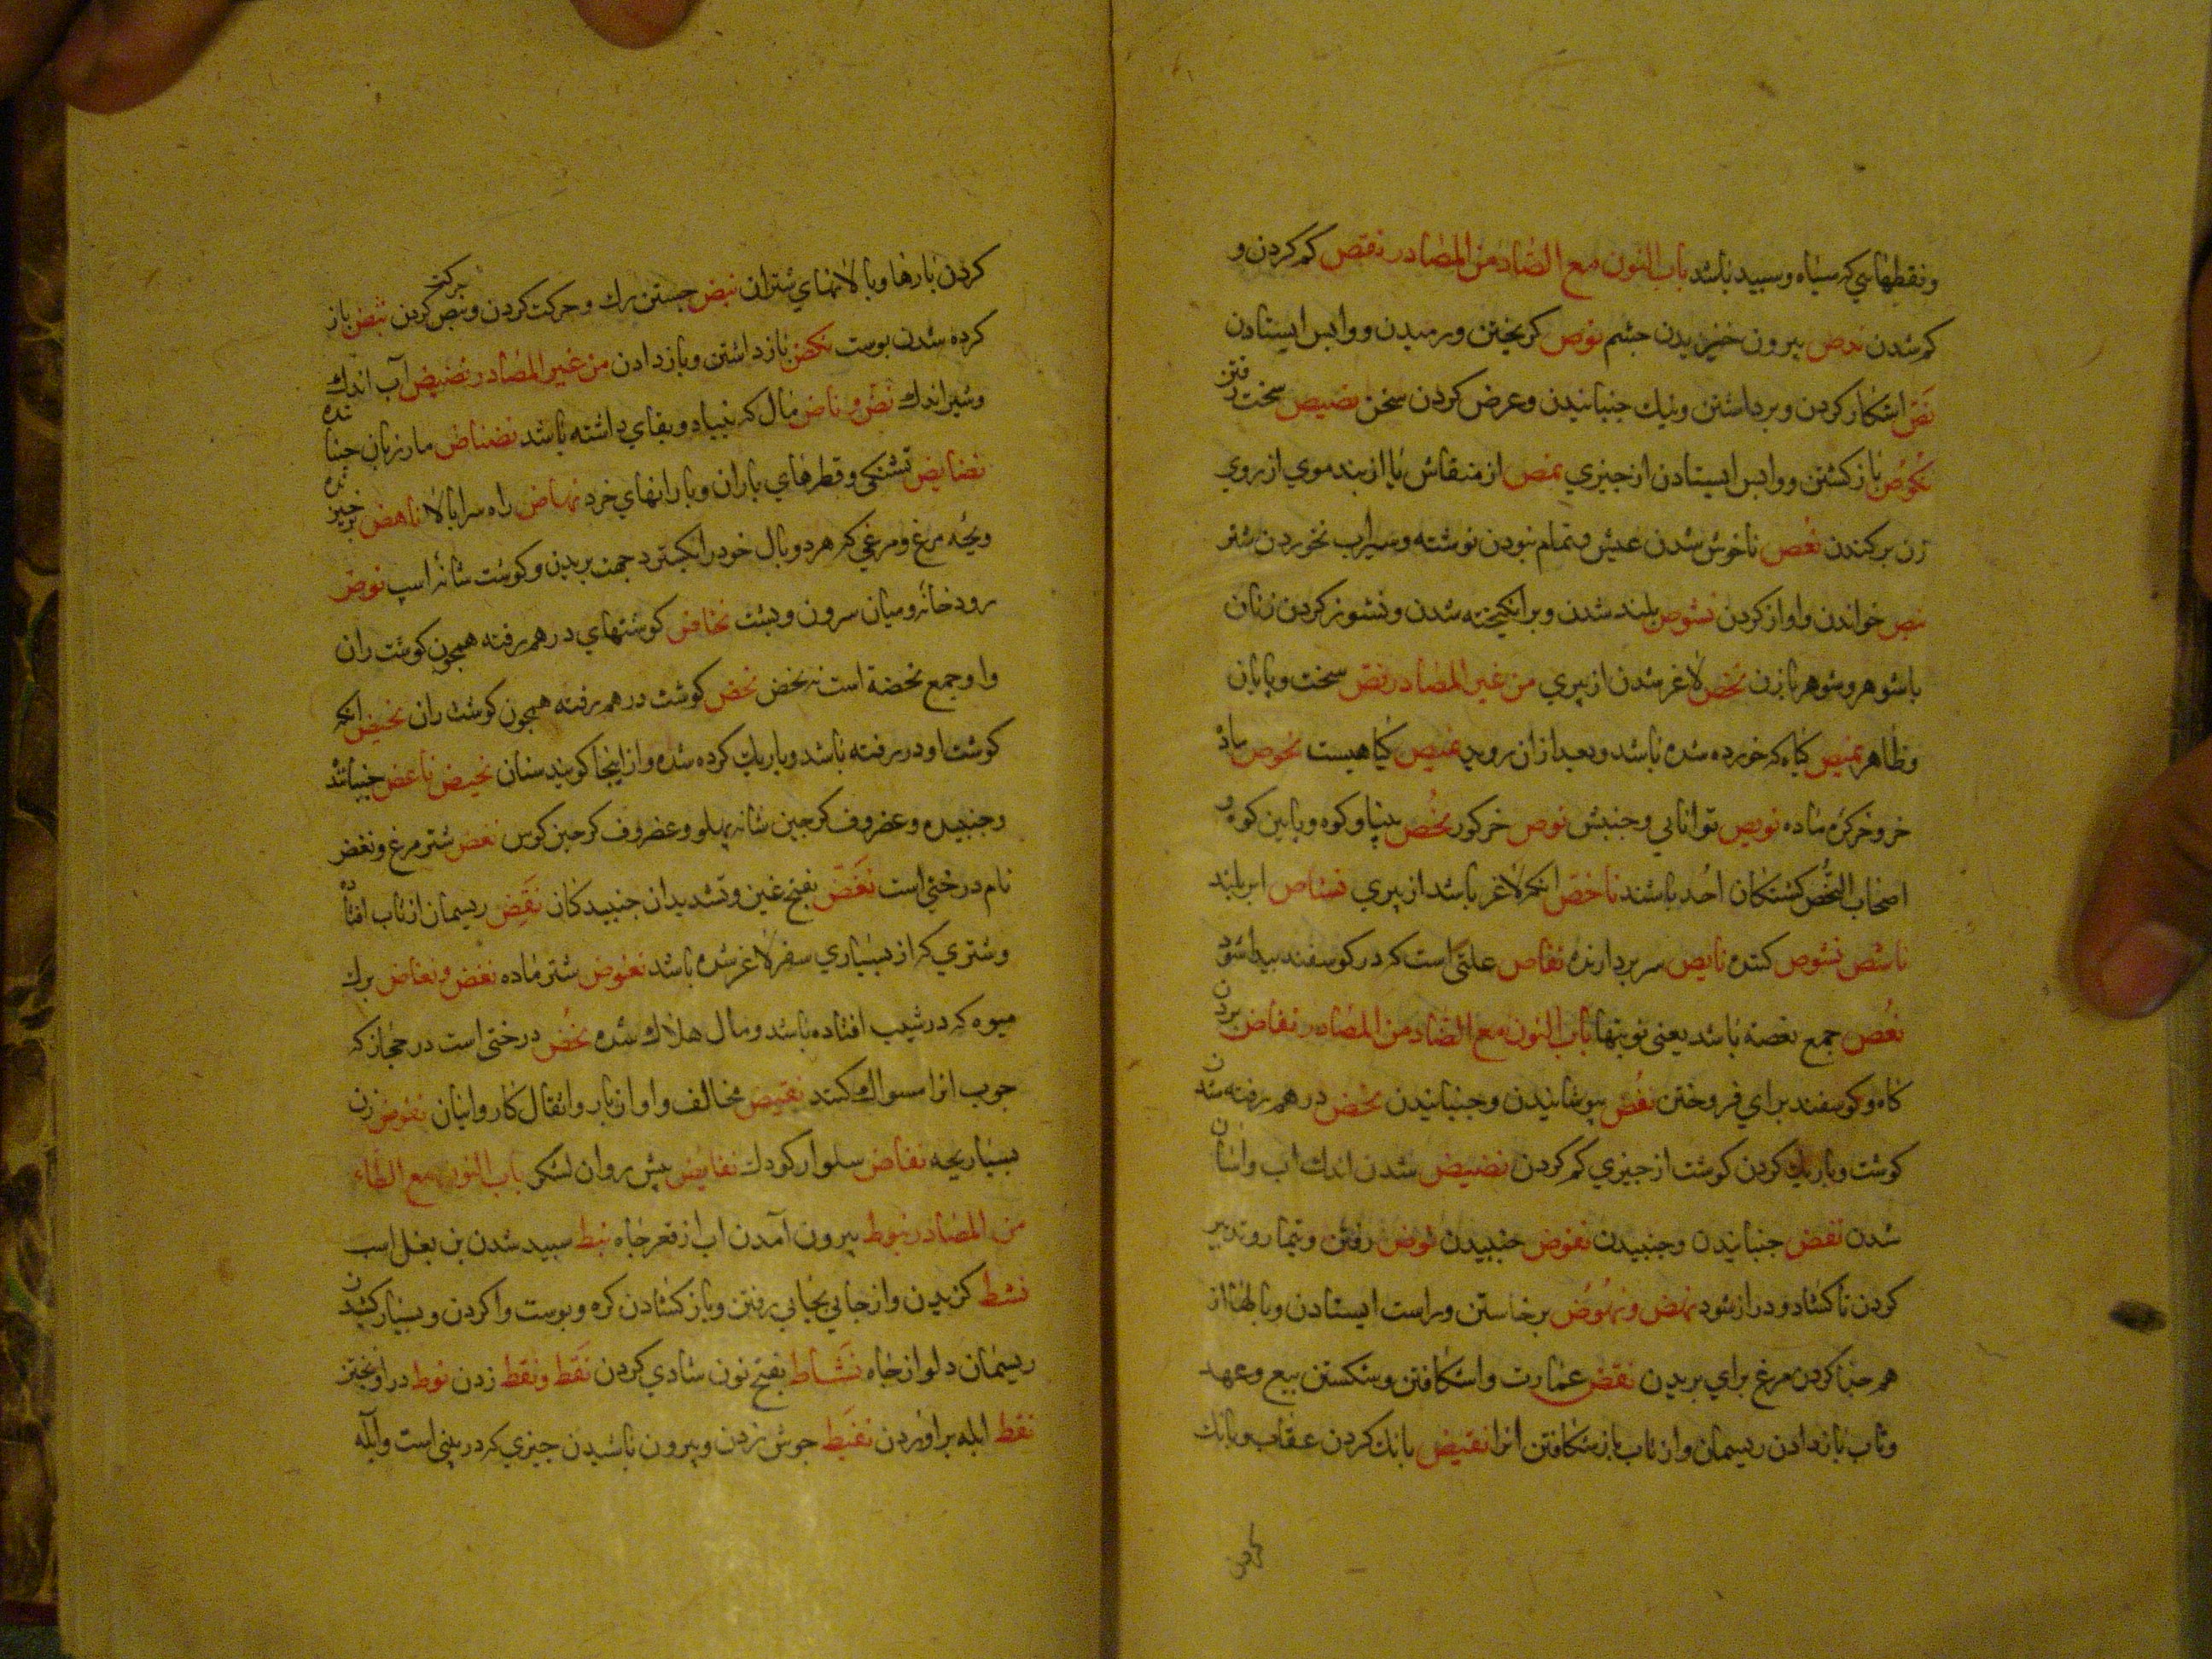 ونقطهایی که سیاه و سبید باشد باب النون مع الصاد من المصادر نقص کم کردن و
کم شدن نحص بیرون خیزیدن جشم نوص کریختن ورمیدن و وابس ایستادن
نص اشکار کردن وبرداشتن ونیك جنبانیدن وعرض کردن سخن نصیص سخت رفتن
نکوص باز کشتن و وابس ایستادن از جیزي نمص از منقاش یا از بند موي از روي
زن برکندن نغص ناخوش شدن عیش وتمام نبودن نوشته وسیراب نخوردن شتر
نبص خواندن واواز کردن نشوص بلند شدن وبرانکیخته شدن ونشوز کردن زنان
با شوهر وشوهر با زن نخص لاغر شدن از بیري من غیر المصادر نص سخت وپایان
وظاهر نمیص کیاه که خورده شده باشد وبعد از ان روید نمیص کیاهیست نحوص ماده
خر وخرکره ماده نویص توانایی وجنبش نوص خر کور نحص بیتاوکوه وپایین کوه و
اصحاب النحص کشتکان احد باشند ناخص انکه لاغر باشد از بیري نشاص ابر بلند
ناشص نشوص کننده نایص سر بردارنده نقاص علتی است که در کوسفند بیدا شود
نغص جمع نغصه باشد یعنی نوبتها باب النون مع الضاد من المصادر نفاض بردن
کاه وکوسفند براي فروختن نفض بوشانیدن وجنبانیدن نحض درهم رفته شدن
کوشت وباریك کردن کوشت از جیزي کم کردن نضیض شدن اندك اب واشان
شدن نغض جنبانیدن وجنبیدن نغوض جنبیدن نوض رفتن وتیمار وتدبیر
کردن تا کشاد ودراز شود نهض ونهوض برخاستن وراست ایستادن وبالها از
هم جدا کردن مرغ براي بریدن نقض عمارت واشکافتن وشکستن بیع وعهد
وتاب باز دادن ریسمان واز تاب باز شکافتن انرا نقیض بانك کردن عقاب وبانك
کردن
کردن بارها وبالانهاي شتران نبض جستن رك وحرکت کردن ونبض کردن نبض باز
کرده شدن بوست نکض باز داشتن وباز دادن من غیر المصادر نضیض آب اندك
وشیر اندك نض وناض مال که بنیاد وبقاي داشته باشد نضناض مار زبان جنباننده
نضایض تشنکی وقطرهاي باران وبارانهاي خرد نهاض راه سرابالا ناهض خیزنده
وبچه مرغ ومرغی که هر دو بال خود را بکسترد جهت بریدن وکوشت شانه اسب نوض
رودخانه ومیان سرون وبشت نحاض کوشتهاي درهم رفته همچون کوشت ران
واو جمع نحضة است نه نحض نحض کوشت درهم رفته همچون کوشت ران نحیض انکه
کوشت او در رفته باشد وباریك کرده شده واز اینجا کویند سنان نحیض ناغض جنباننده
وجنبیده وغضروف کرجین شانه بهلو وغضروف کرجین کوس نغض شتر مرغ ونغض
نام درختی است نغض بفتح غین وتشدید ان جنبیدکان نقیض ریسمان از تاب افتاده
وشتري که از بسیاري سفر لاغر شده باشد نغوض شتر ماده نفض ونفاض برك
میوه که در شیب افتاده باشد ومال هلاك شده نحض درختی است در حجاز که
جوب انرا مسواك کنند نقیض مخالف واواز بار وانتقال کاروانیان نفوض زن
بسیار بچه نفاض سلوار کودك نفایض بیش روان لشکر باب النون مع الطاء
من المصادر نبوط بیرون آمدن اب از قعر چاه نبط سبید شدن بن بغل اسب
نشط کزیدن واز جایی بجایی رفتن وباز کشادن کره وبوست وا کردن وبسیار کشیدن
ریسمان دلو از چاه نشاط بفتح نون شادي کردن نقط ونقط زدن نوط دراونختن
نفط ابله براوردن نفیط جوش زدن وبیرون باشیدن جیزي که در بینی است وآبله